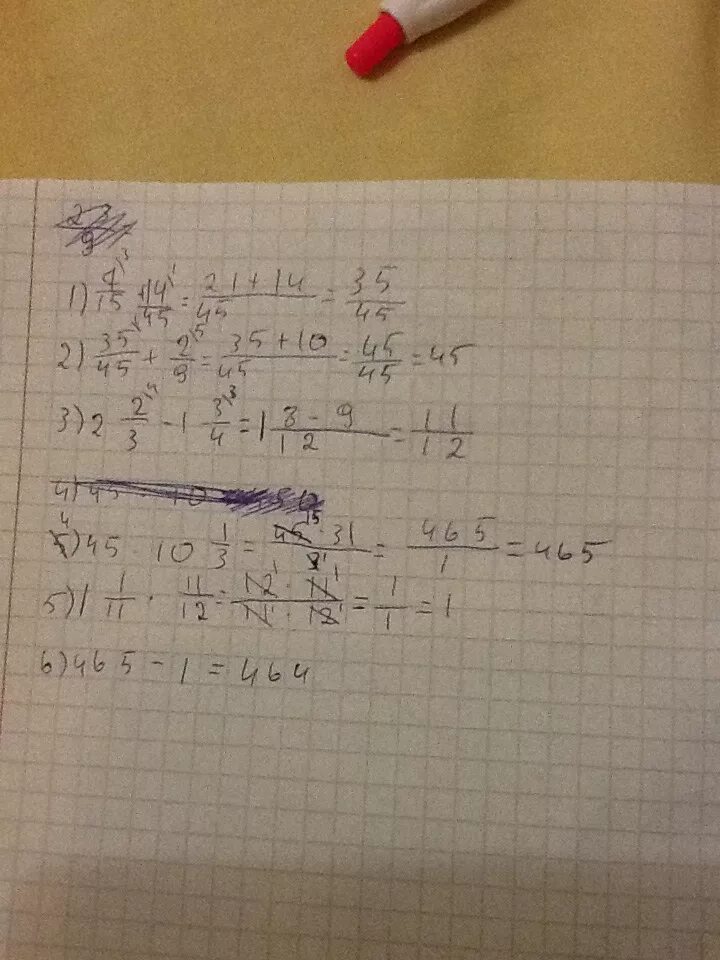 1) 7/15 + 14/45 = 21+14/45 = 35/45
2) 35/45 + 2/9 = 35+10/45 = 45/45 = 45
3) 2 2/3 - 1 3/4 = 1 8-9/12 = 11/12
4) 45 · 10 1/3 = 45·31/3 = 465/1 = 465
5) 1 1/11 · 11/12 = 12·11/11·12 = 1/1 = 1
6) 465 - 1 = 464